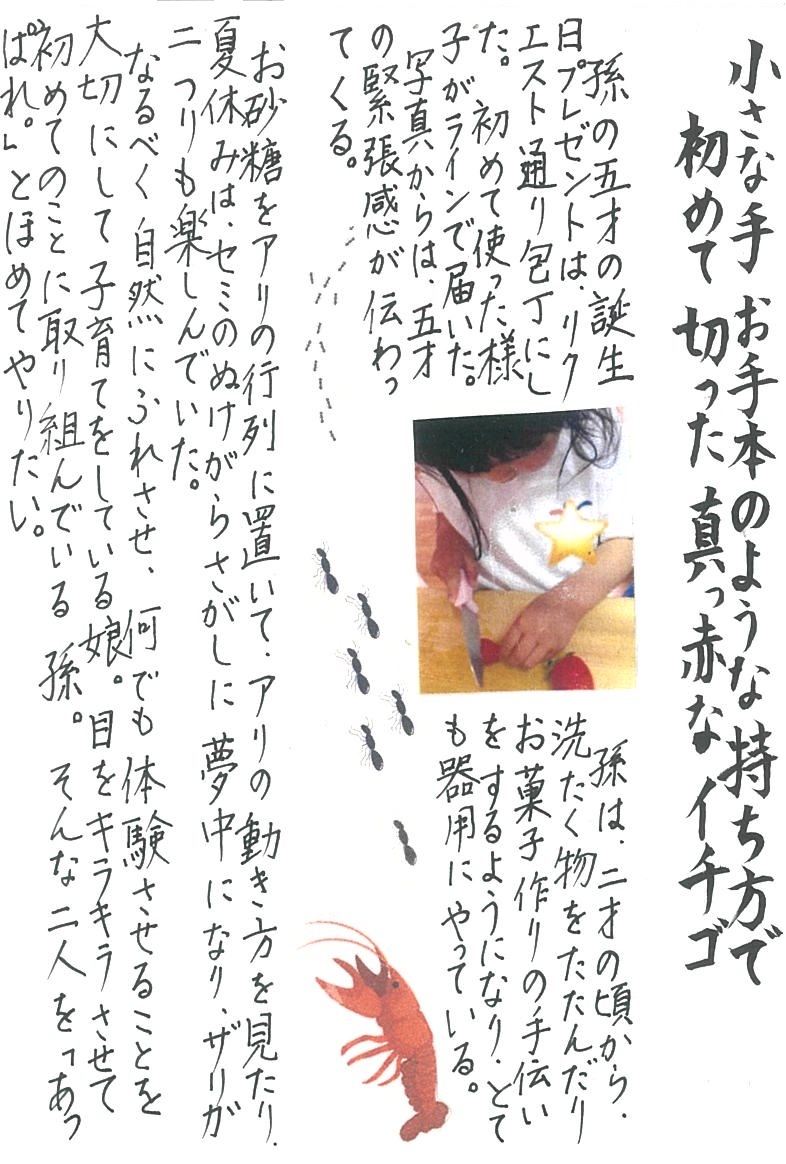 小さな手 お手本のような持ち方で
初めて 切った 真っ赤な イチゴ
孫の五才の誕生
日プレゼントは、リク
エスト通り包丁にし
た。初めて使った様
子がラインで届いた。
写真からは、五才
の緊張感が伝わっ
てくる。
孫は、二才の頃から、
洗たく物をたたんだり
お菓子作りの手伝い
をするようになり、とて
も器用にやっている。
お砂糖をアリの行列に置いて、アリの動き方を見たり、
夏休みは、セミのぬけがらさがしに夢中になり、ザリガ
ニつりも楽しんでいた。
なるべく自然にふれさせ、何でも体験させることを
大切にして子育てをしている娘。目をキラキラさせて
初めてのことに取り組んでいる孫。そんな二人を「あっ
ぱれ。」とほめてやりたい。